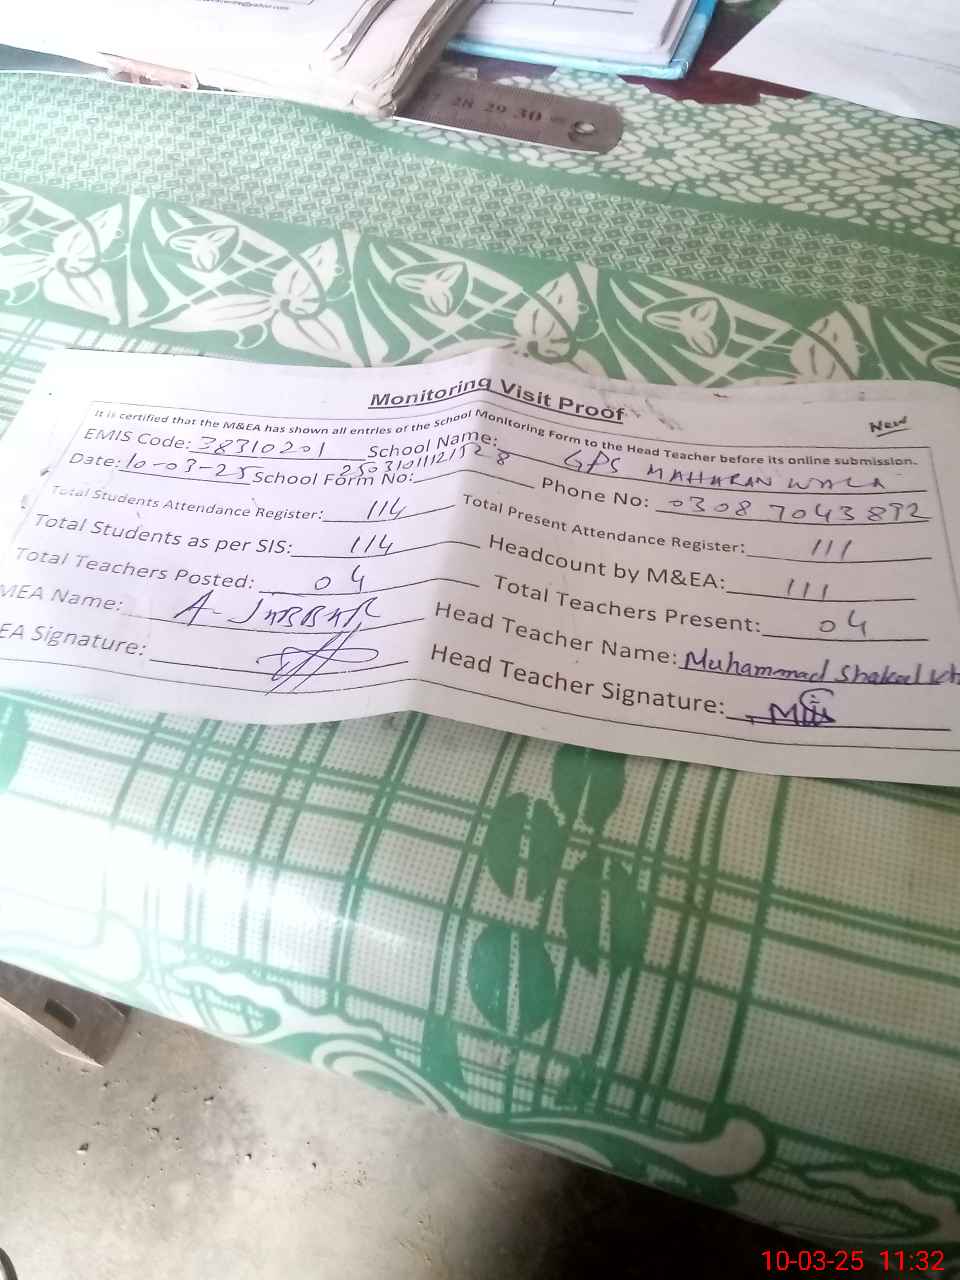 28 29 30
Monitoring Visit Proof
New
It is certified that the M&EA has shown all entries of the School Monitoring Form to the Head Teacher before its online submission.
EMIS Code: 38310201 School Name: GPS MAHARAN WALA
Date: 10-03-25 School Form No: Phone No: 0308 7043892
Total Students Attendance Register: 114 Total Present Attendance Register: 111
Total Students as per SIS: 114 Headcount by M&EA: 111
Total Teachers Posted: 04 Total Teachers Present: 04
MEA Name: A- Head Teacher Name: Muhammad Shakeel
EA Signature: Head Teacher Signature:
10-03-25 11:32